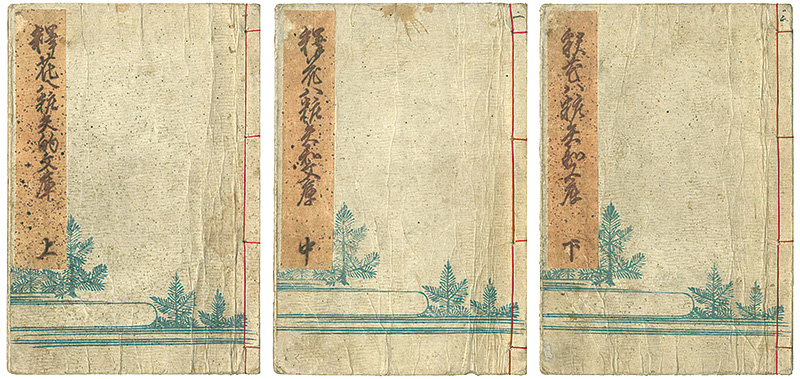 釋花八粧矢的文庫
上
釋花八粧矢的文庫
中
釈花八粧矢的文庫
下